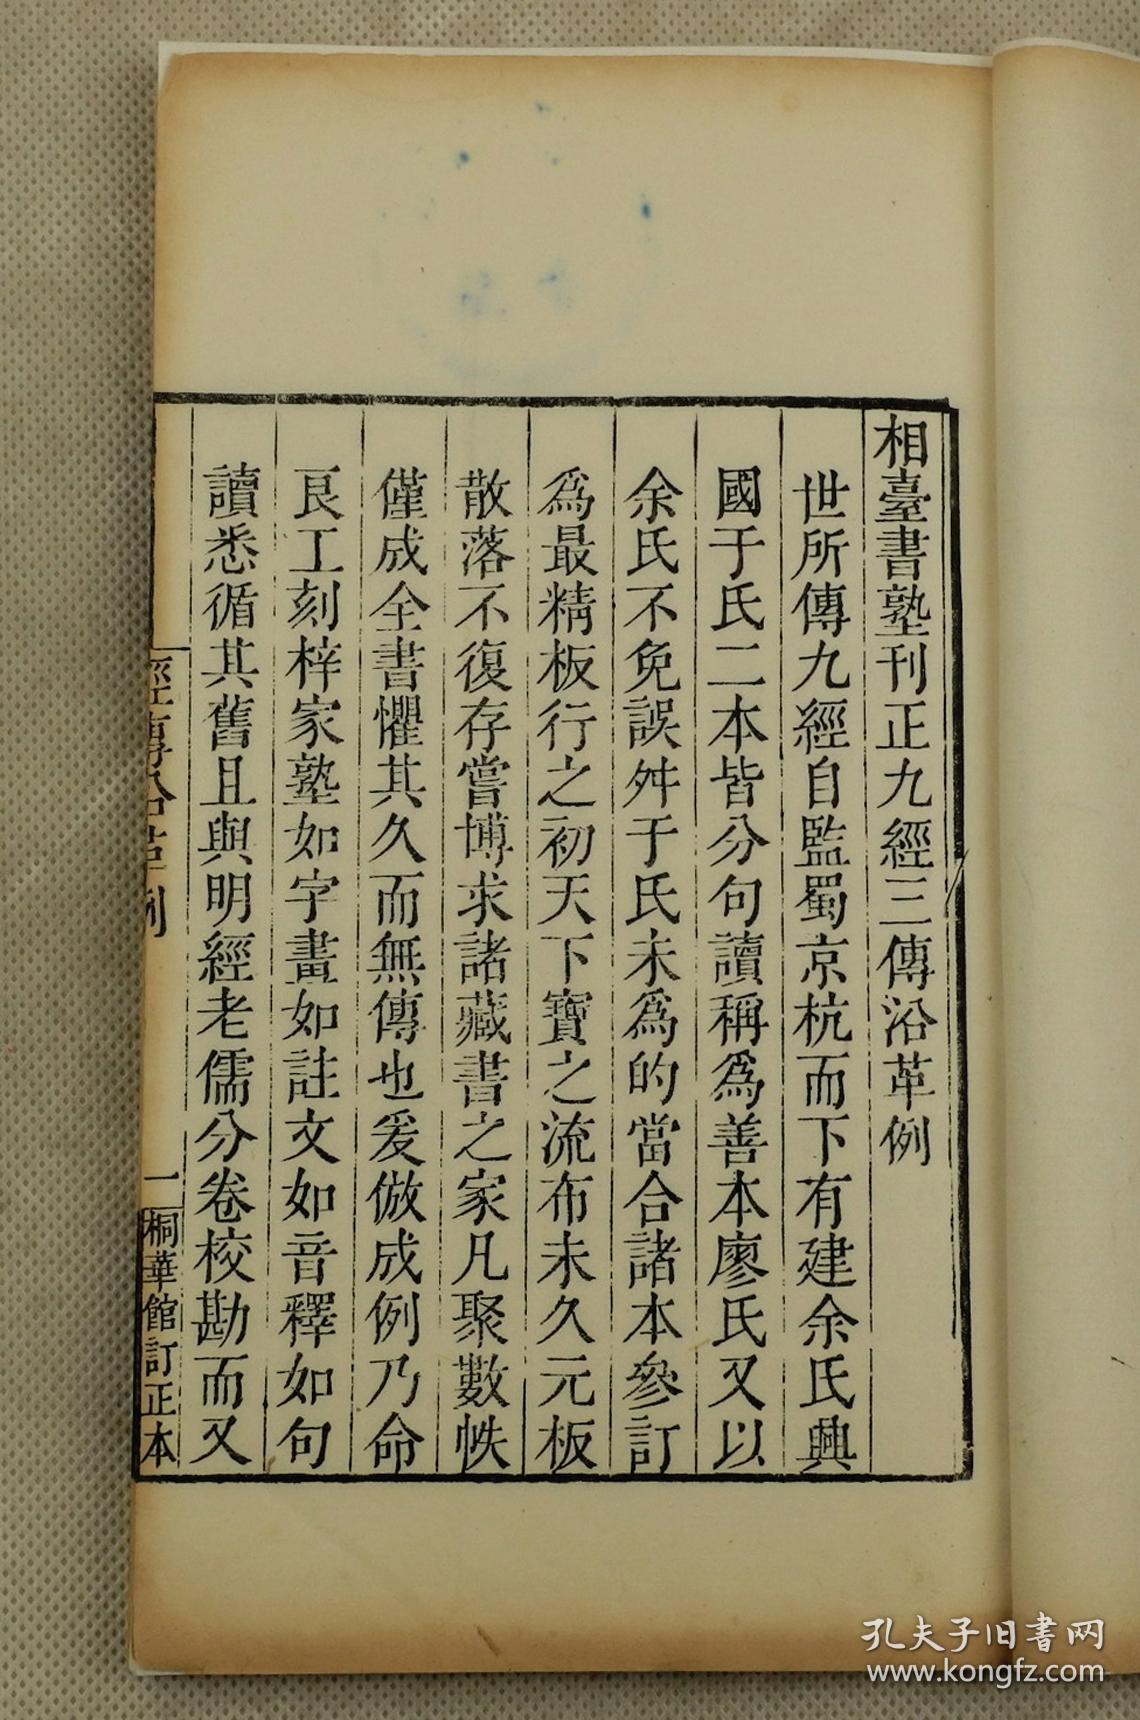 相臺書塾刊正九經三傳沿革例
世所傳九經自監蜀京杭而下有建余氏興
國于氏二本皆分句讀稱爲善本廖氏又以
余氏不免誤舛于氏未爲的當合諸本參訂
爲最精板行之初天下寶之流布未久元板
散落不復存嘗博求諸藏書之家凡聚數帙
僅成全書懼其久而無傳也爰倣成例乃命
良工刻梓家塾如字畫如註文如音釋如句
讀悉循其舊且與明經老儒分卷校勘而又
經傳沿革例
一
桐華館訂正本
孔夫子旧書网
www.kongfz.com